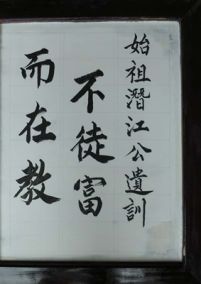 始祖潛江公遺訓
不徒富
而在教